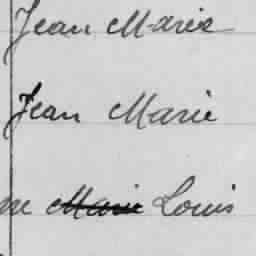 Jean Marie
Jean Marie
Marie Louis